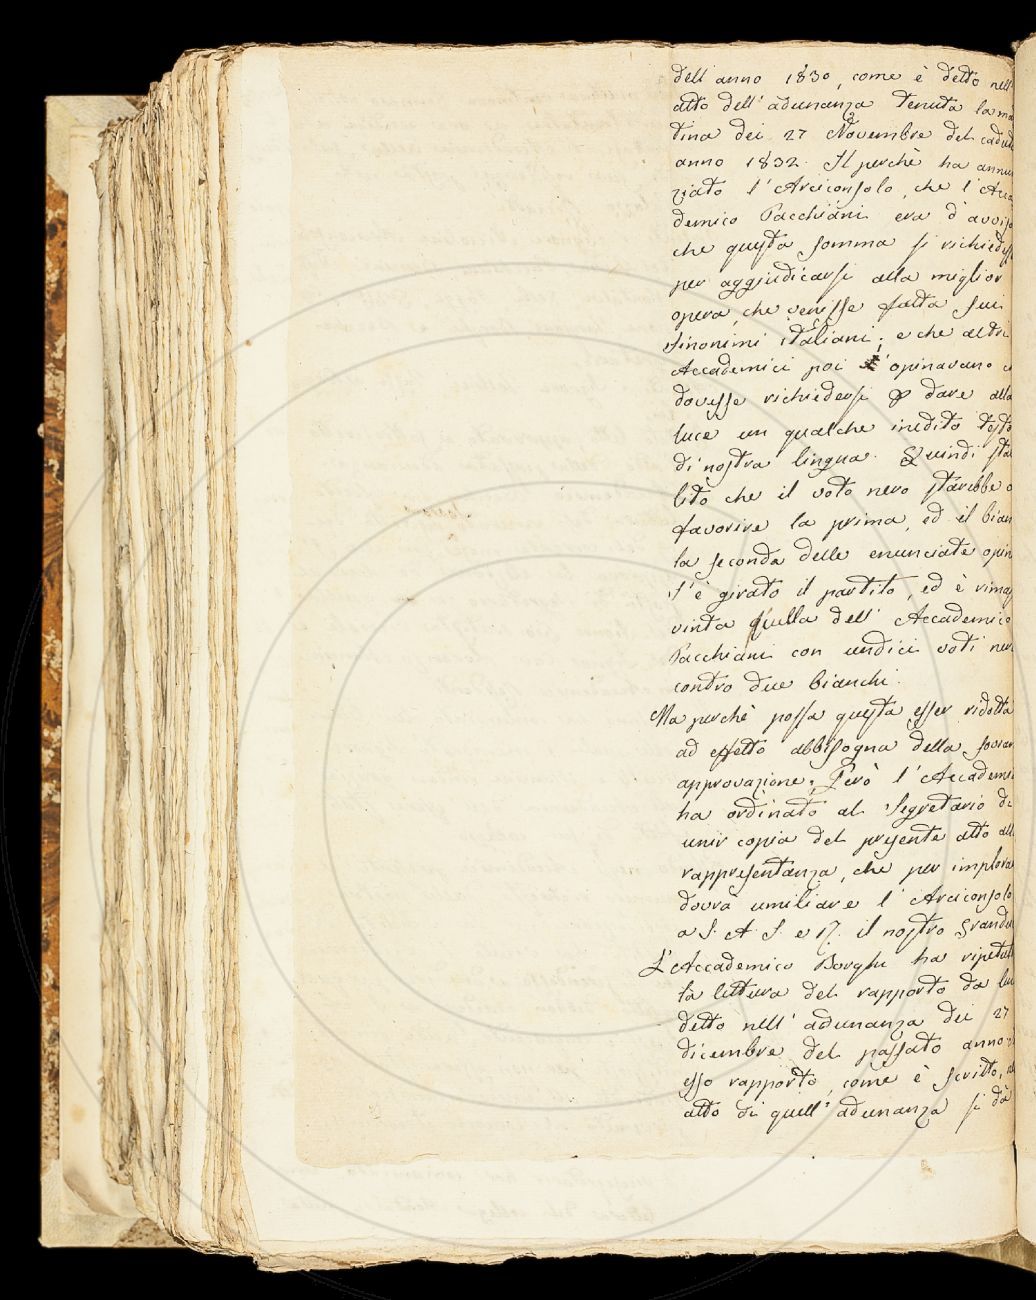 dell'anno 1830, come è detto nell'
atto dell'adunanza tenuta la mat
tina dei 27 Novembre del cadut
anno 1832. Il perchè ha annun
ziato l'Arciconsolo, che l'Acca
demico Pacchiani era d'avviso
che questa somma si richiedess
per aggiudicarsi alla miglior
opera, che venisse fatta sui
sinonimi italiani; e che altri
Accademici poi opinavano c
dovesse richiedersi p dare alla
luce un qualche inedito testo
di nostra lingua. Quindi sta
lito che il voto nero starebbe a
favorire la prima, ed il bian
la seconda delle enunciate opin
s'è girato il partito, ed è rimas
vinta quella dell'Accademico
Pacchiani con undici voti ner
contro due bianchi.
Ma perchè possa questa esser ridotta
ad effetto abbisogna della sovran
approvazione. Però l'Accademi
ha ordinato al Segretario di
unir copia del presente atto all
rappresentanza, che per implorar
dovrà umiliare l'Arciconsolo
a S. A. I. e R. il nostro Grandu
L'Accademico Borghi ha ripetut
la lettura del rapporto da lui
detto nell'adunanza dei 27
dicembre del passato anno
esso rapporto, come è scritto, ne
atto di quell'adunanza si dà